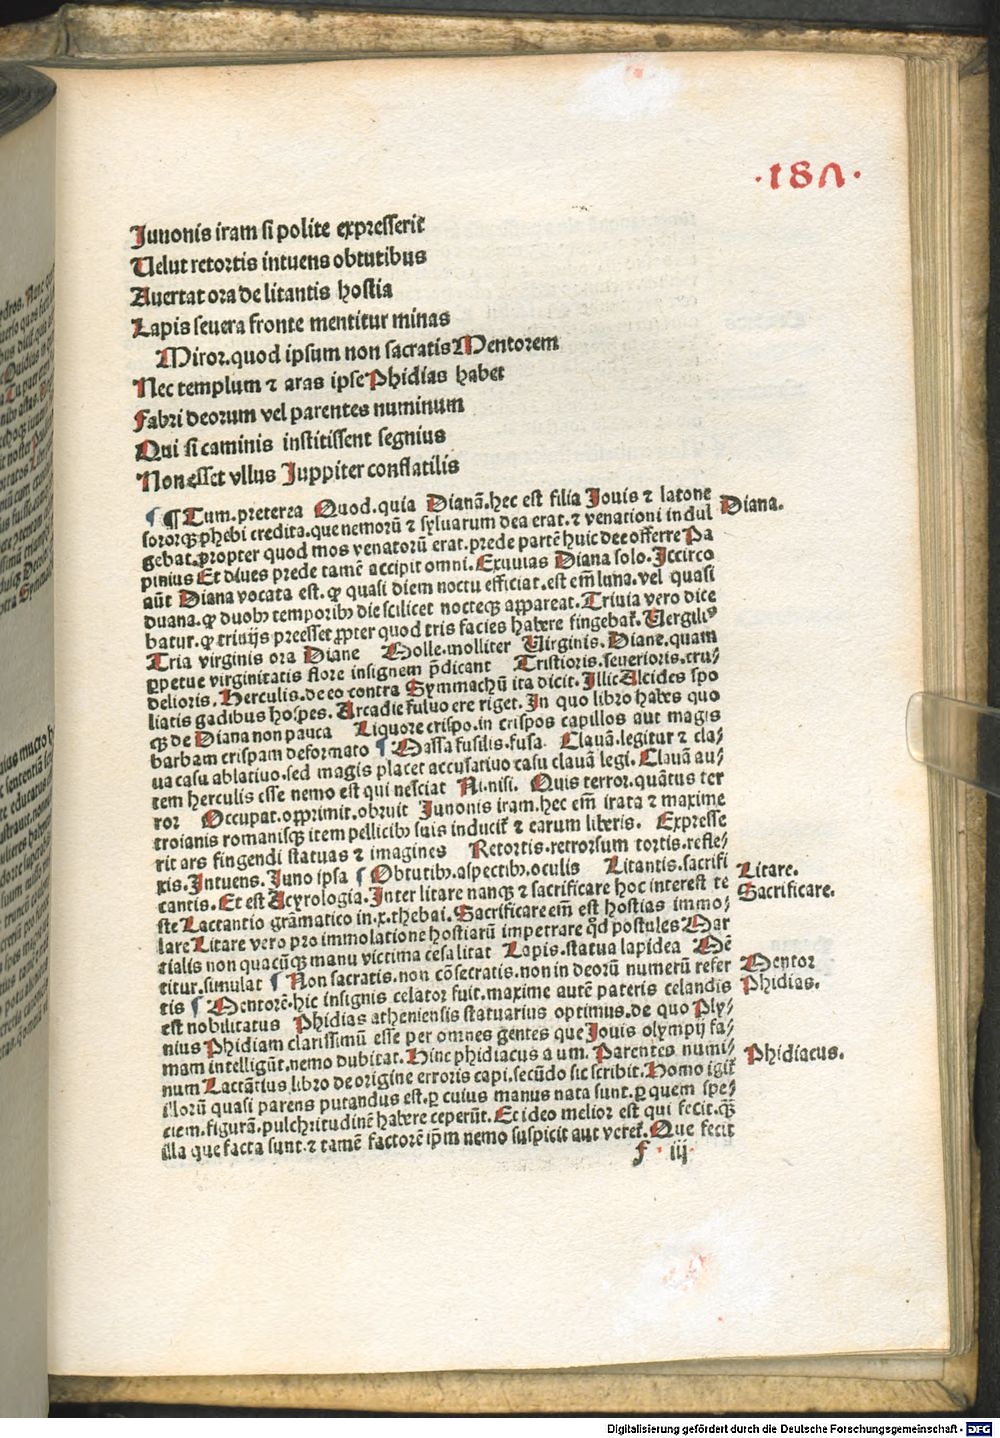 ·18Λ·
Iunonis iram si polite expresserit̃
Uelut retortis intuens obtutibus
Auertat ora de litantis hostia
Lapis seuera fronte mentitur minas
Miror.quod ipsum non sacratis Mentorem
Nec templum ⁊ aras ipse Phidias habet
Fabri deorum vel parentes numinum
Qui si caminis institissent segnius
Non esset vllus Juppiter conflatilis
¶ ¶ Tum.preterea Quod.quia Dianã.hec est filia Iouis ⁊ latone
sororqꝫ phebi credita.que nemorũ ⁊ syluarum dea erat.⁊ venationi indul
gebat.ꝓpter quod mos venatorũ erat.prede partẽ huic dee offerre Pa
pinius Et diues prede tamẽ accipit omni. Exuuias Diana solo. Iccirco
aũt Diana vocata est. ꝙ quasi diem noctu efficiat.est em̃ luna. vel quasi
duana. ꝙ duobꝫ temporibꝫ die scilicet nocteqꝫ appareat. Triuia vero dice
batur. ꝙ triuijs preesset ꝓpter quod tris facies habere fingebat̃. Vergiliꝰ
Tria virginis ora Diane Molle.molliter Virginis. Diane.quam
ꝑpetue virginitatis flore insignem p̃dicant Tristioris.seuerioris.cru⸗
delioris. Herculis.de eo contra Symmachũ ita dicit. Illic Alcides spo
liatis gadibus hospes. Arcadie fuluo ere riget. In quo libro habes quo
qꝫ de Diana non pauca Liquore crispo.in crispos capillos aut magis
barbam crispam deformato ¶ Massa fusilis.fusa. Clauã.legitur ⁊ cla⸗
ua casu ablatiuo.sed magis placet accusatiuo casu clauã legi. Clauã au⸗
tem herculis esse nemo est qui nesciat Ni.nisi. Quis terror.quãtus ter
ror Occupat.opprimit.obruit Iunonis iram.hec em̃ irata ⁊ maxime
troianis romanisqꝫ item pellicibꝫ suis inducit̃ ⁊ earum liberis. Expresse
rit ars fingendi statuas ⁊ imagines Retortis.retrorsum tortis.refle⸗
xis. Intuens. Iuno ipsa ¶ Obtutibꝫ.aspectibꝫ.oculis Litantis.sacrifi
cantis. Et est Acyrologia. Inter litare nanqꝫ ⁊ sacrificare hoc interest te
ste Lactantio grãmatico in.x.thebai. Sacrificare em̃ est hostias immo⸗
lare Litare vero pro immolatione hostiarũ impetrare qd̃ postules Mar
tialis non quacũqꝫ manu victima cesa litat Lapis.statua lapidea Mẽ
titur.simulat ¶ Non sacratis.non cõsecratis.non in deorũ numerũ refer
tis ¶ Mentorẽ.hic insignis celator fuit.maxime autẽ pateris celandis
est nobilitatus Phidias atheniensis statuarius optimus.de quo Ply⸗
nius Phidiam clarissimũ esse per omnes gentes que Iouis olympij fa⸗
mam intelligũt.nemo dubitat. Hinc phidiacus a um. Parentes numi⸗
num Lactãtius libro de origine erroris capi.secũdo sic scribit. Homo igit̃
illorũ quasi parens putandus est.ꝑ cuius manus nata sunt.ꝑ quem spe⸗
ciem.figurã.pulchritudinẽ habere ceperũt. Et ideo melior est qui fecit.qꝫ̃
illa que facta sunt.⁊ tamẽ factorẽ ip̃m nemo suspicit aut veret̃. Que fecit
f iij
Diana.
Litare.
Sacrificare.
Mentor
Phidias.
Phidiacus.
Digitalisierung gefördert durch die Deutsche Forschungsgemeinschaft - DFG